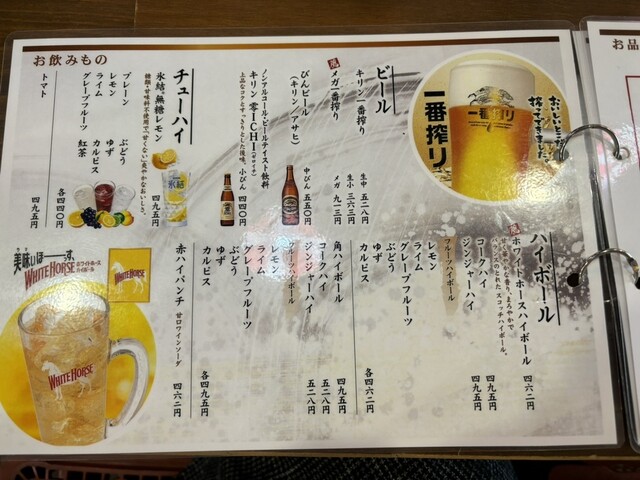 お飲みもの
おいしいとこだけ
搾ってできました。
一番搾り
一番搾り
ビール
キリン 一番搾り
生中 五二八円
生小 三六三円
メガ 一番搾り
メガ 九一三円
びんビール
(キリン/アサヒ)
中びん 五五〇円
ノンアルコール・ビールテイスト飲料
キリン 零ICHI(ゼロイチ)
上品なコクとすっきりとした後味。
小びん 四四〇円
チューハイ
氷結®無糖レモン
糖類・甘味料不使用で「甘くない」爽やかなおいしさ。
四九五円
氷結
プレーン
レモン
ライム
グレープフルーツ
ぶどう
ゆず
カルピス
紅茶
各四四〇円
トマト
四九五円
ハイボール
ホワイトホースハイボール
スコッチハイボール。
四六二円
コークハイ
四九五円
ジンジャーハイ
四九五円
フルーツハイボール
レモン
ライム
グレープフルーツ
ぶどう
ゆず
カルピス
各四六二円
角ハイボール
四九五円
コークハイ
五二八円
ジンジャーハイ
五二八円
フルーツハイボール
レモン
ライム
グレープフルーツ
ぶどう
ゆず
カルピス
各四九五円
赤ハイパンチ 甘口ワインソーダ
四六二円
美味いほーす。
WHITE HORSE
ホワイトホース
ハイボール
WHITE HORSE
WHITE HORSE
お品